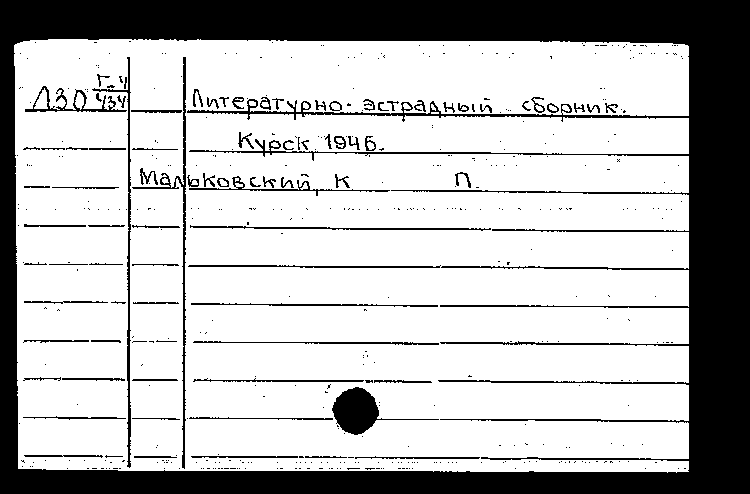 Л30 Г-4/434 Литературно-эстрадный сборник.
Курск, 1946.
Мальковский, К П.